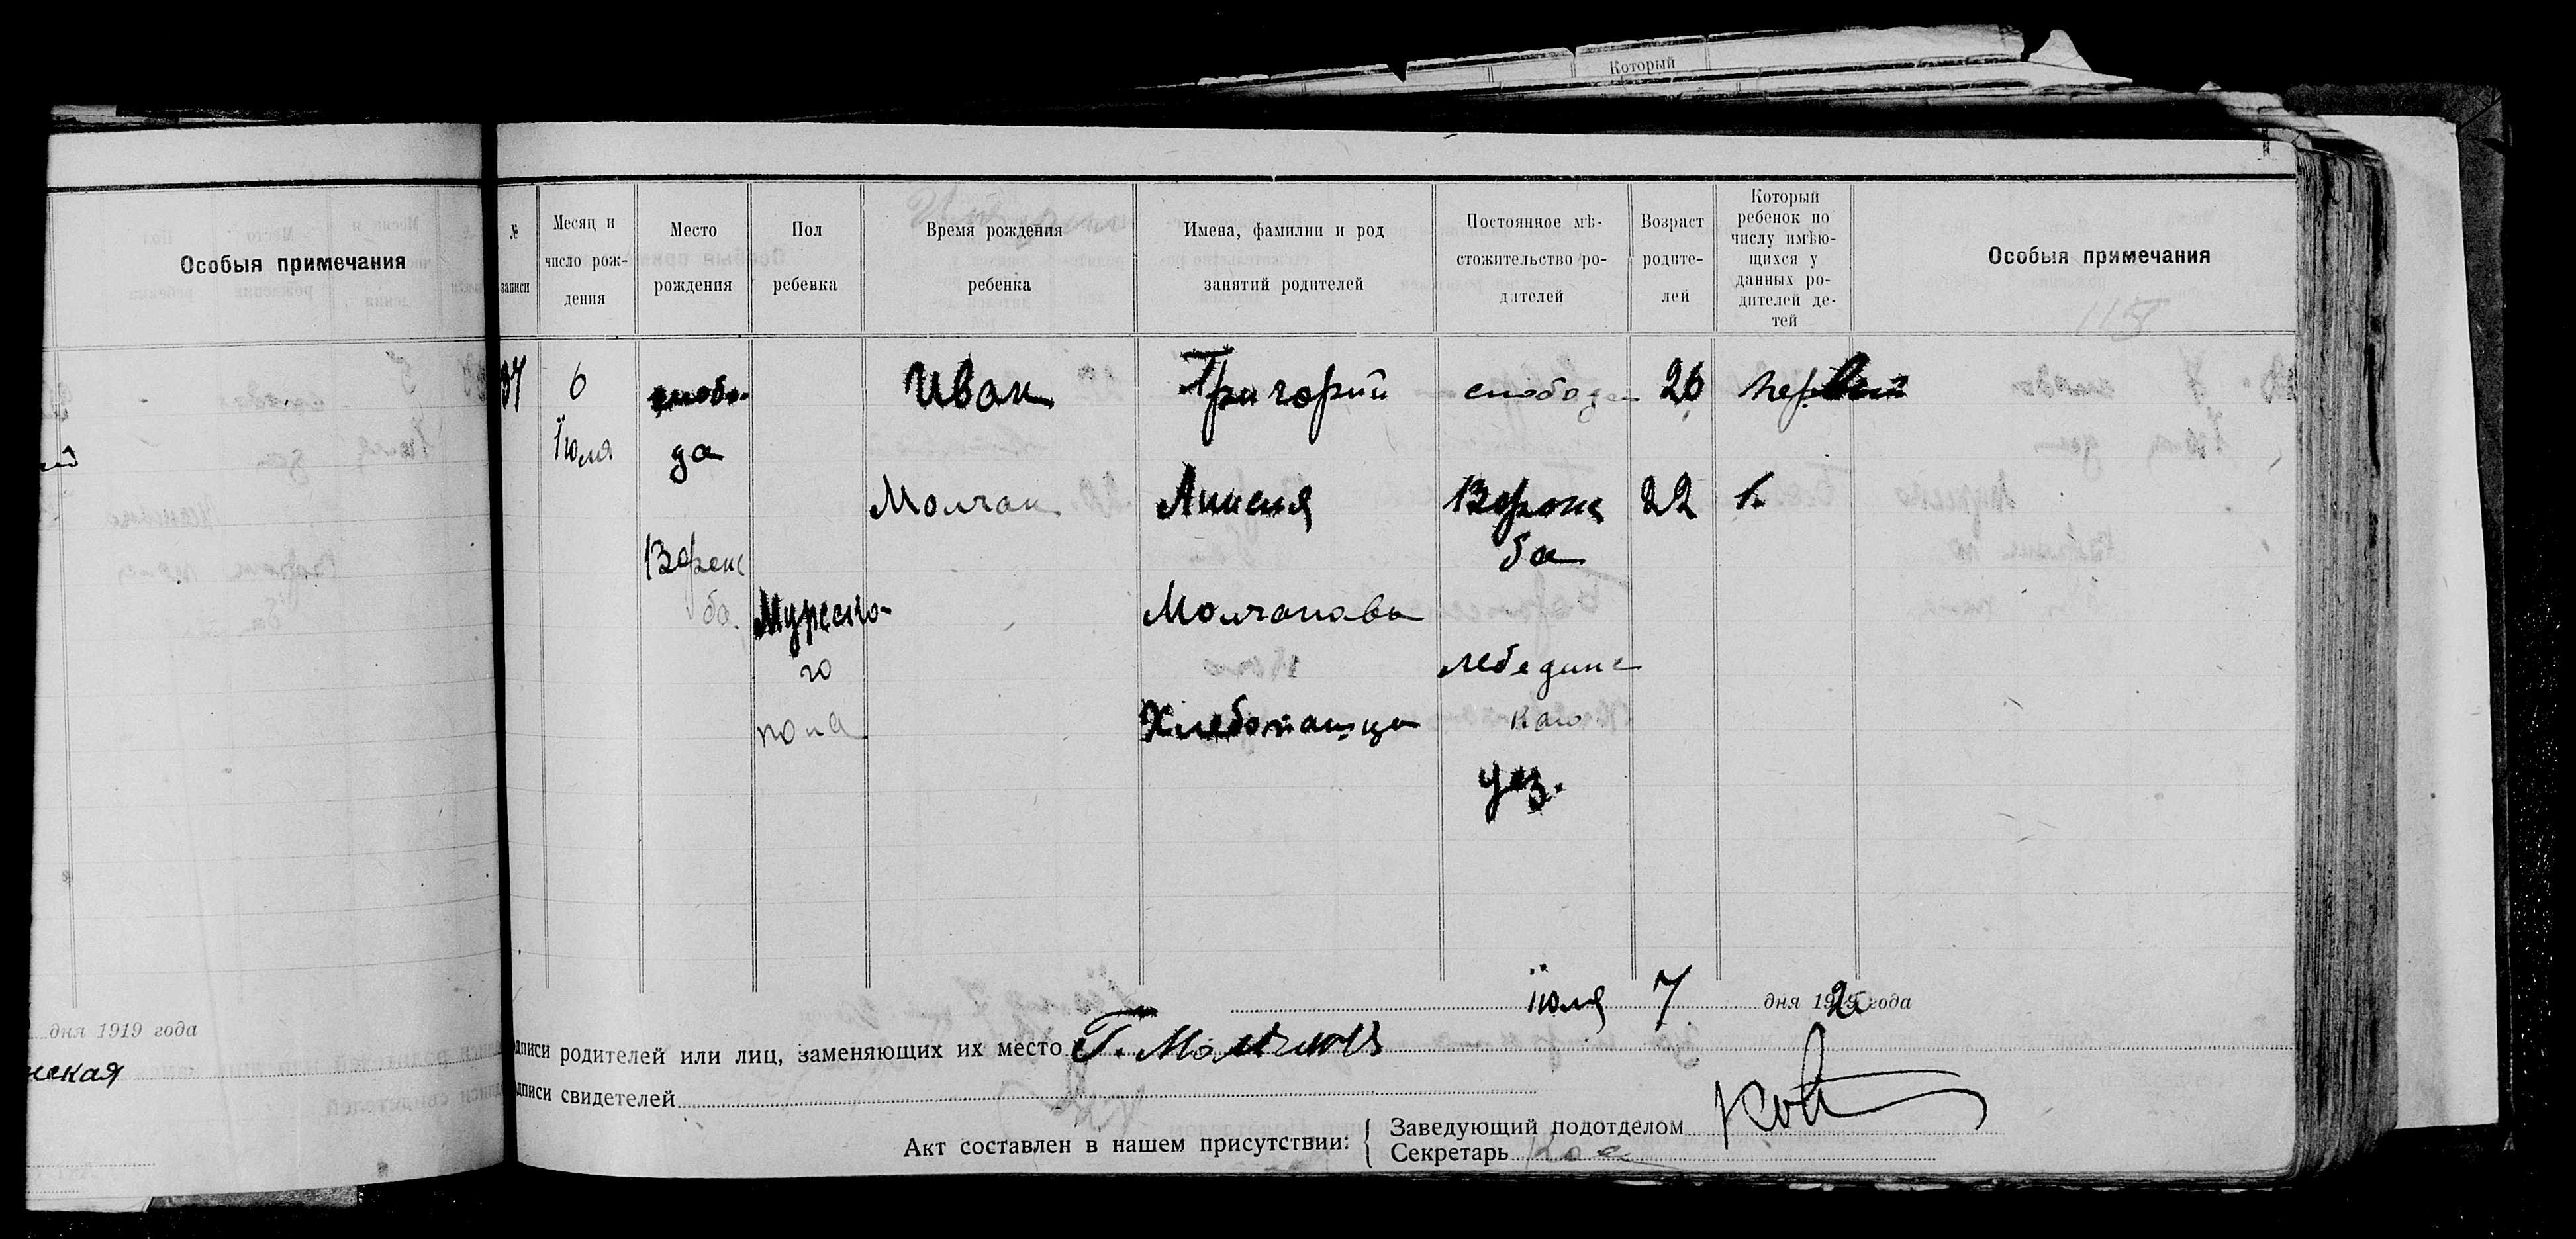 Который
Особыя примечания
дня 1919 года
ская
№ записи
Месяц и число рож-
дения
Место
рождения
Пол
ребенка
Время рождения
ребенка
Имена, фамилии и род
занятий родителей
Постоянное мѣ-
стожительство ро-
дителей
Возраст
родите-
лей
Который
ребенок по
числу имѣю-
щихся у
данных ро-
дителей де-
тей
Особыя примечания
115
37
6
Іюля
слобо-
да
Ворож
ба.
Мужско-
го
пола
Иван
Молчан
Григорий
Молчановы
Хлебопашцы
слобода
Ворож
ба
Лебединс
каго
уез.
26
22
первый
1.
июля 7 дня 192 года
дписи родителей или лиц, заменяющих их место Г. Молчанов
дписи свидетелей
Акт составлен в нашем присутствии:
Заведующий подотделом
Секретарь